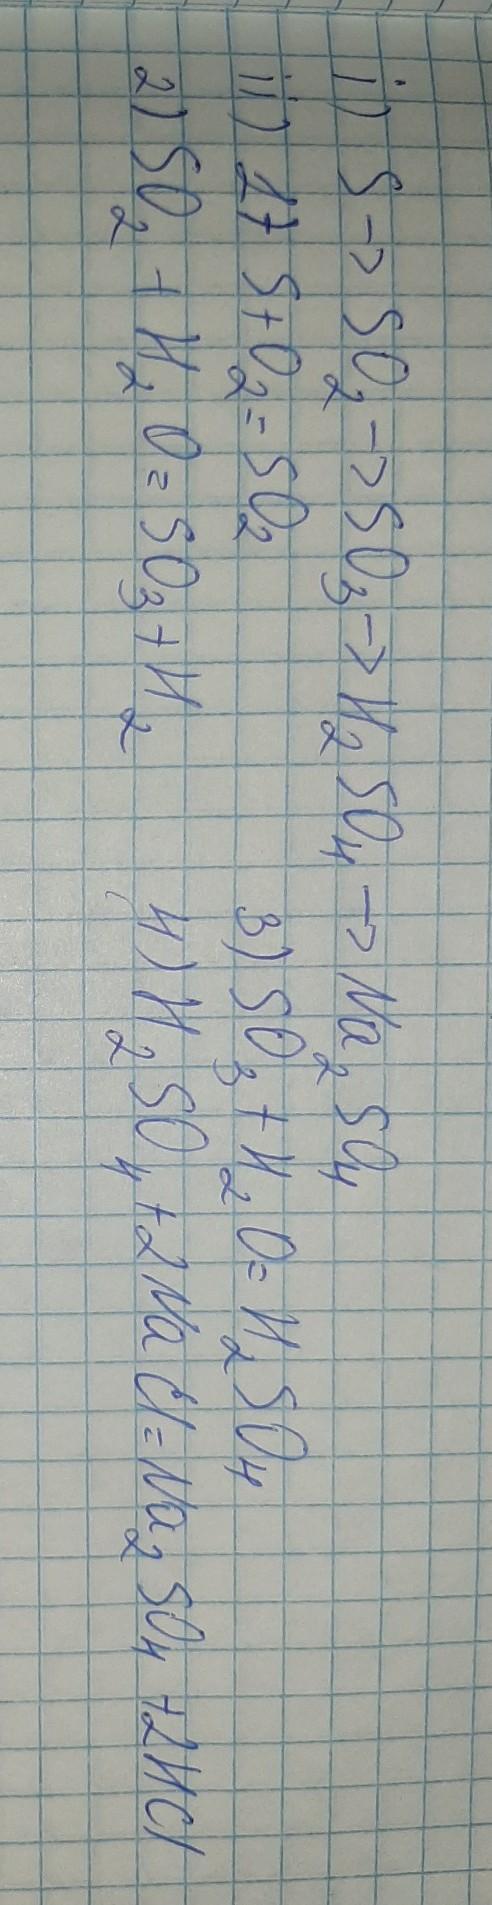 i) S -> SO₂ -> SO₃ -> H₂SO₄ -> Na₂SO₄
ii) 1) S + O₂ = SO₂
3) SO₃ + H₂O = H₂SO₄
2) SO₂ + H₂O = SO₃ + H₂
4) H₂SO₄ + 2NaCl = Na₂SO₄ + 2HCl